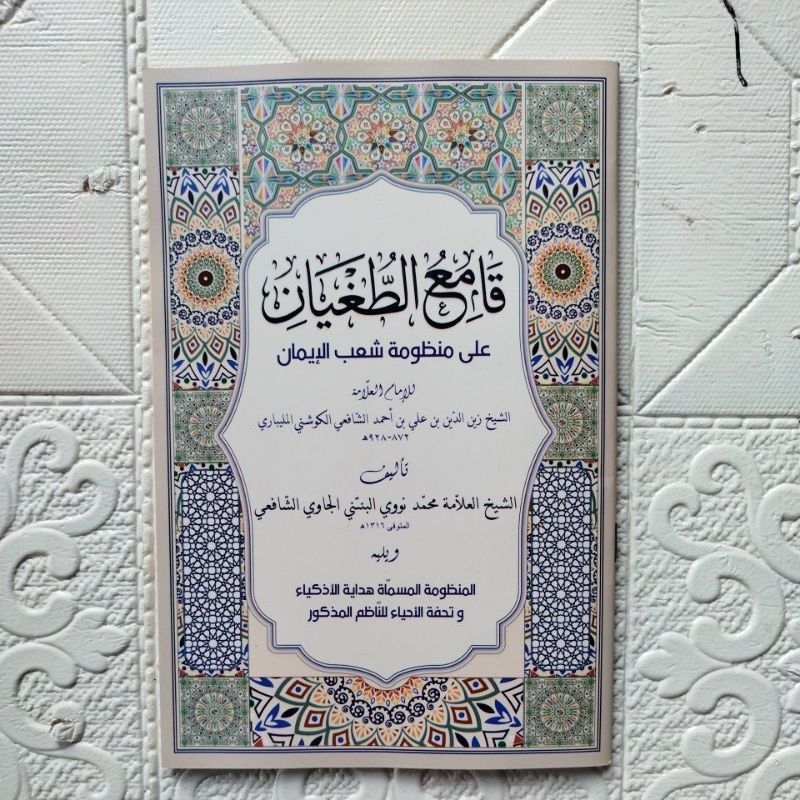 قَامِعُ الطُّغْيَانِ
على منظومة شعب الإيمان
للإمام العلّامة
الشيخ زين الدّين بن علي بن أحمد الشّافعي الكوشني المليباري
٨٧٢-٩٢٨هـ
تأليف
الشيخ العلاّمة محمّد نووي البنتني الجاوي الشّافعي
المتوفى ١٣١٦هـ
ويليه
المنظومة المسمّاة هداية الأذكياء
وتحفة الأحياء للنّاظم المذكور